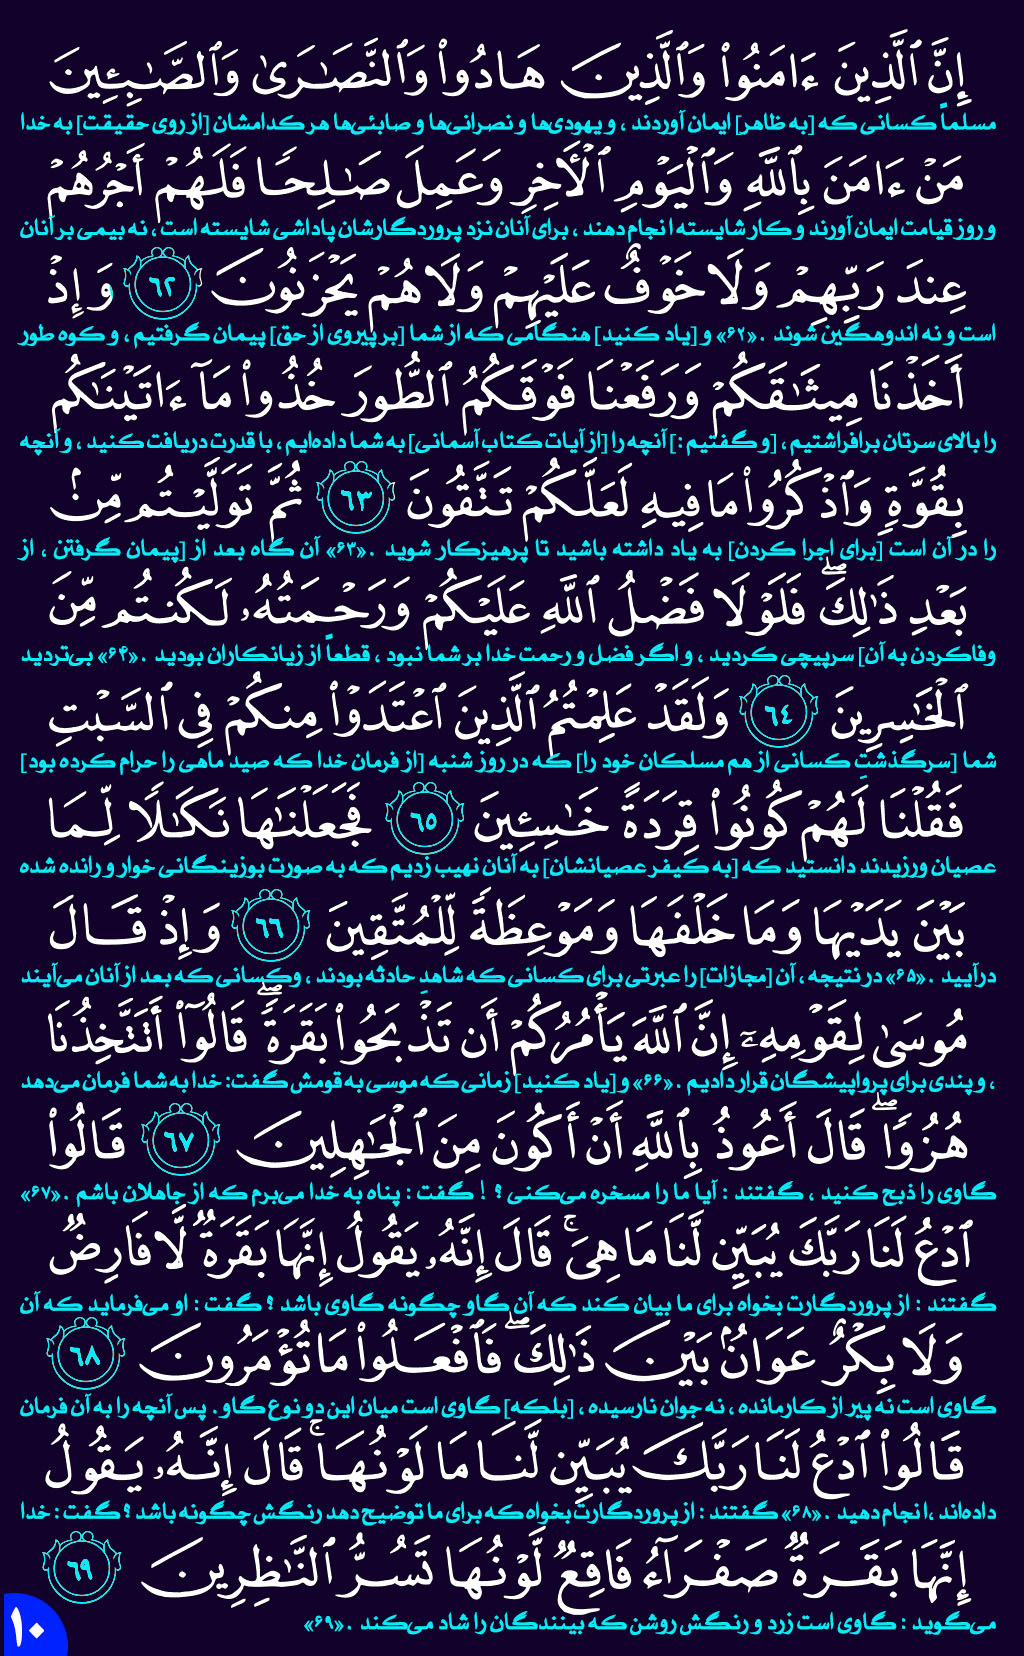 إِنَّ ٱلَّذِينَ ءَامَنُوا۟ وَٱلَّذِينَ هَادُوا۟ وَٱلنَّصَـٰرَىٰ وَٱلصَّـٰبِـِٔينَ
مسلماً کسانی که [به ظاهر] ایمان آوردند ، و یهودی‌ها و نصرانی‌ها و صابئی‌ها هر کدامشان [از روی حقیقت] به خدا
مَنْ ءَامَنَ بِٱللَّهِ وَٱلْيَوْمِ ٱلْـَٔاخِرِ وَعَمِلَ صَـٰلِحًا فَلَهُمْ أَجْرُهُمْ
و روز قیامت ایمان آورند و کار شایسته انجام دهند ، برای آنان نزد پروردگارشان پاداشی شایسته است ، نه بیمی بر آنان
عِندَ رَبِّهِمْ وَلَا خَوْفٌ عَلَيْهِمْ وَلَا هُمْ يَحْزَنُونَ ٦٢ وَإِذْ
است و نه اندوهگین شوند . «۶۲» و [یاد کنید] هنگامی که از شما [بر پیروی از حق] پیمان گرفتیم ، و کوه طور
أَخَذْنَا مِيثَـٰقَكُمْ وَرَفَعْنَا فَوْقَكُمُ ٱلطُّورَ خُذُوا۟ مَآ ءَاتَيْنَـٰكُم
را بالای سرتان برافراشتیم ، [و گفتیم :] آنچه را [از آیات کتاب آسمانی] به شما داده‌ایم ، با قدرت دریافت کنید ، و آنچه
بِقُوَّةٍ وَٱذْكُرُوا۟ مَا فِيهِ لَعَلَّكُمْ تَتَّقُونَ ٦٣ ثُمَّ تَوَلَّيْتُم مِّنۢ
را در آن است [برای اجرا کردن] به یاد داشته باشید تا پرهیزکار شوید . «۶۳» آن گاه بعد از [پیمان گرفتن ، از
بَعْدِ ذَٰلِكَ ۖ فَلَوْلَا فَضْلُ ٱللَّهِ عَلَيْكُمْ وَرَحْمَتُهُۥ لَكُنتُم مِّنَ
وفاکردن به آن] سرپیچی کردید ، و اگر فضل و رحمت خدا بر شما نبود ، قطعاً از زیانکاران بودید . «۶۴» بی‌تردید
ٱلْخَـٰسِرِينَ ٦٤ وَلَقَدْ عَلِمْتُمُ ٱلَّذِينَ ٱعْتَدَوْا۟ مِنكُمْ فِى ٱلسَّبْتِ
شما [سرگذشتِ کسانی از هم مسلکان خود را] که در روز شنبه [از فرمان خدا که صید ماهی را حرام کرده بود]
فَقُلْنَا لَهُمْ كُونُوا۟ قِرَدَةً خَـٰسِـِٔينَ ٦٥ فَجَعَلْنَـٰهَا نَكَـٰلًا لِّمَا
عصیان ورزیدند دانستید که [به کیفر عصیانشان] به آنان نهیب زدیم که به صورت بوزینگانی خوار و رانده شده
بَيْنَ يَدَيْهَا وَمَا خَلْفَهَا وَمَوْعِظَةً لِّلْمُتَّقِينَ ٦٦ وَإِذْ قَالَ
درآیید . «۶۵» در نتیجه ، آن [مجازات] را عبرتی برای کسانی که شاهدِ حادثه بودند ، و کسانی که بعد از آنان می‌آیند
مُوسَىٰ لِقَوْمِهِۦٓ إِنَّ ٱللَّهَ يَأْمُرُكُمْ أَن تَذْبَحُوا۟ بَقَرَةً ۖ قَالُوٓا۟ أَتَتَّخِذُنَا
، و پندی برای پرواپیشگان قرار دادیم . «۶۶» و [یاد کنید] زمانی که موسی به قومش گفت: خدا به شما فرمان می‌دهد
هُزُوًا ۖ قَالَ أَعُوذُ بِٱللَّهِ أَنْ أَكُونَ مِنَ ٱلْجَـٰهِلِينَ ٦٧ قَالُوا۟
گاوی را ذبح کنید ، گفتند : آیا ما را مسخره می‌کنی ؟ ! گفت : پناه به خدا می‌برم که از جاهلان باشم . «۶۷»
ٱدْعُ لَنَا رَبَّكَ يُبَيِّن لَّنَا مَا هِىَ ۚ قَالَ إِنَّهُۥ يَقُولُ إِنَّهَا بَقَرَةٌ لَّا فَارِضٌ
گفتند : از پروردگارت بخواه برای ما بیان کند که آن گاو چگونه گاوی باشد ؟ گفت : او می‌فرماید که آن
وَلَا بِكْرٌ عَوَانٌۢ بَيْنَ ذَٰلِكَ ۖ فَٱفْعَلُوا۟ مَا تُؤْمَرُونَ ٦٨
گاوی است نه پیر از کارمانده ، نه جوان نارسیده ، [بلکه] گاوی است میان این دو نوع گاو . پس آنچه را به آن فرمان
قَالُوا۟ ٱدْعُ لَنَا رَبَّكَ يُبَيِّن لَّنَا مَا لَوْنُهَا ۚ قَالَ إِنَّهُۥ يَقُولُ
داده‌اند ،انجام دهید . «۶۸» گفتند : از پروردگارت بخواه که برای ما توضیح دهد رنگش چگونه باشد ؟ گفت : خدا
إِنَّهَا بَقَرَةٌ صَفْرَآءُ فَاقِعٌ لَّوْنُهَا تَسُرُّ ٱلنَّـٰظِرِينَ ٦٩
می‌گوید : گاوی است زرد و رنگش روشن که بینندگان را شاد می‌کند . «۶۹»
۱۰